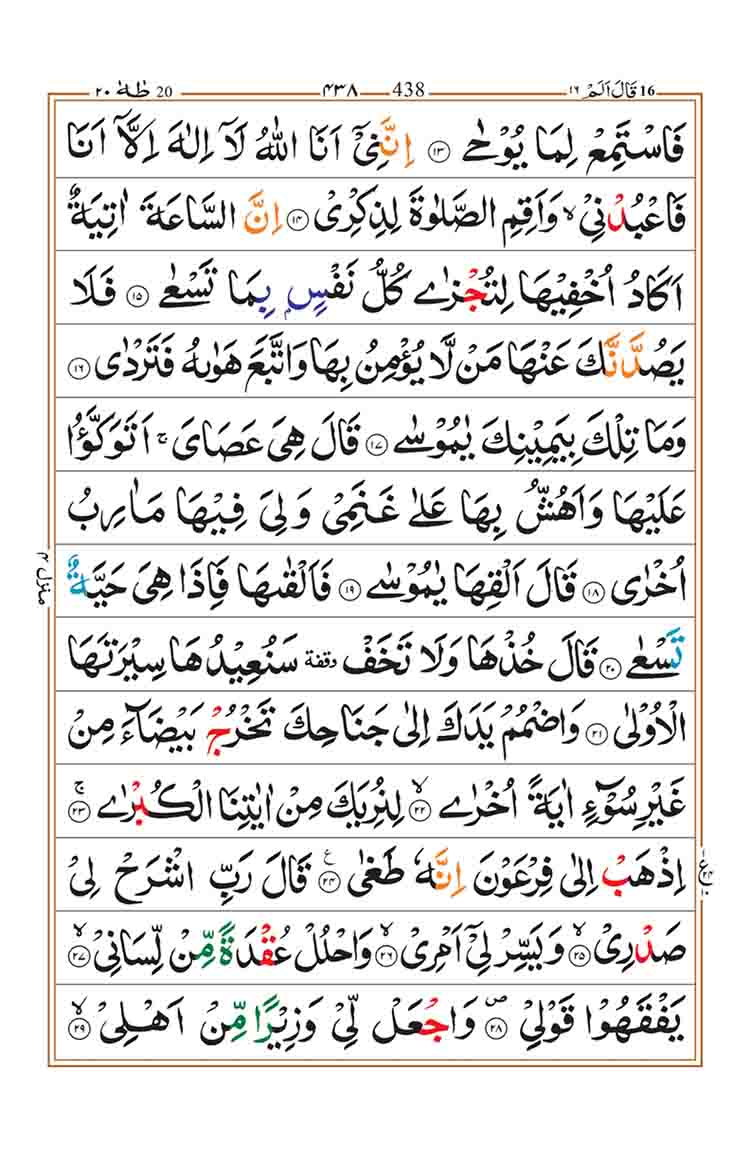 20 طٰهٰ ٢٠ 438 ٤٣٨ 16 قَالَ اَلَمْ ١٦
فَاسْتَمِعْ لِمَا يُوْحٰى ١٣ اِنَّنِيْۤ اَنَا اللّٰهُ لَاۤ اِلٰهَ اِلَّاۤ اَنَا
فَاعْبُدْنِيْ ۙ وَاَقِمِ الصَّلٰوةَ لِذِكْرِيْ ١٤ اِنَّ السَّاعَةَ اٰتِيَةٌ
اَكَادُ اُخْفِيْهَا لِتُجْزٰى كُلُّ نَفْسٍۭ بِمَا تَسْعٰى ١٥ فَلَا
يَصُدَّنَّكَ عَنْهَا مَنْ لَّا يُؤْمِنُ بِهَا وَاتَّبَعَ هَوٰىهُ فَتَرْدٰى ١٦
وَمَا تِلْكَ بِيَمِيْنِكَ يٰمُوْسٰى ١٧ قَالَ هِيَ عَصَايَ ۚ اَتَوَكَّؤُا
عَلَيْهَا وَاَهُشُّ بِهَا عَلٰى غَنَمِيْ وَلِيَ فِيْهَا مَاٰرِبُ
اُخْرٰى ١٨ قَالَ اَلْقِهَا يٰمُوْسٰى ١٩ فَاَلْقٰىهَا فَاِذَا هِيَ حَيَّةٌ
تَسْعٰى ٢٠ قَالَ خُذْهَا وَلَا تَخَفْ وقفة سَنُعِيْدُهَا سِيْرَتَهَا
الْاُوْلٰى ٢١ وَاضْمُمْ يَدَكَ اِلٰى جَنَاحِكَ تَخْرُجْ بَيْضَآءَ مِنْ
غَيْرِ سُوْٓءٍ اٰيَةً اُخْرٰى ۙ ٢٢ لِنُرِيَكَ مِنْ اٰيٰتِنَا الْكُبْرٰى ۚ ٢٣
اِذْهَبْ اِلٰى فِرْعَوْنَ اِنَّهٗ طَغٰى ع ٢٤ قَالَ رَبِّ اشْرَحْ لِيْ
صَدْرِيْ ۙ ٢٥ وَيَسِّرْ لِيْۤ اَمْرِيْ ۙ ٢٦ وَاحْلُلْ عُقْدَةً مِّنْ لِّسَانِيْ ۙ ٢٧
يَفْقَهُوْا قَوْلِيْ ۖ ٢٨ وَاجْعَلْ لِّيْ وَزِيْرًا مِّنْ اَهْلِيْ ۙ ٢٩
منزل ٤